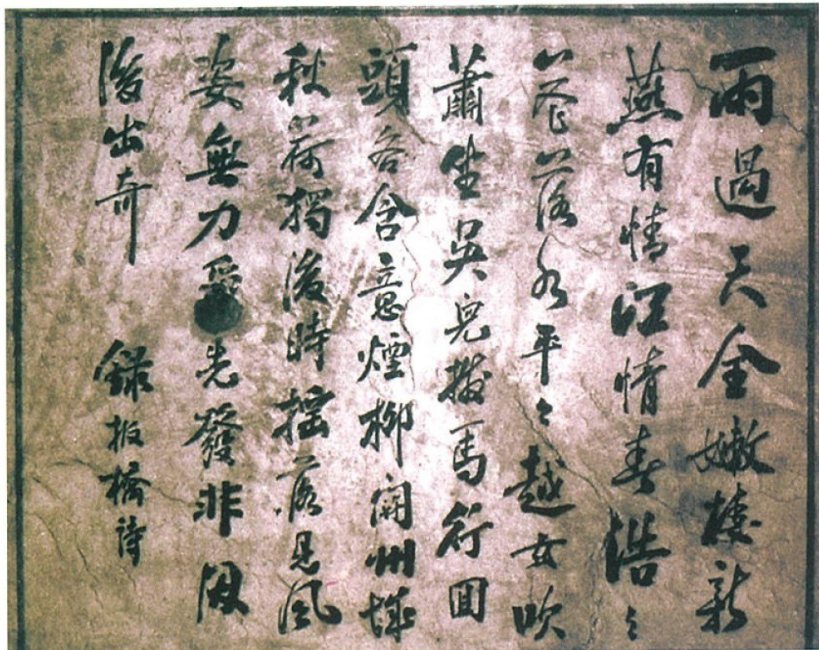 雨過天全嫩樓新
燕有情江情春浩〻
花落水平〻越女吹
蕭坐吳兒撥馬行回
頭各含意煙柳闔州城
秋荷獨後時搖落見風
姿無力爭先發非因
後出奇 錄板橋詩